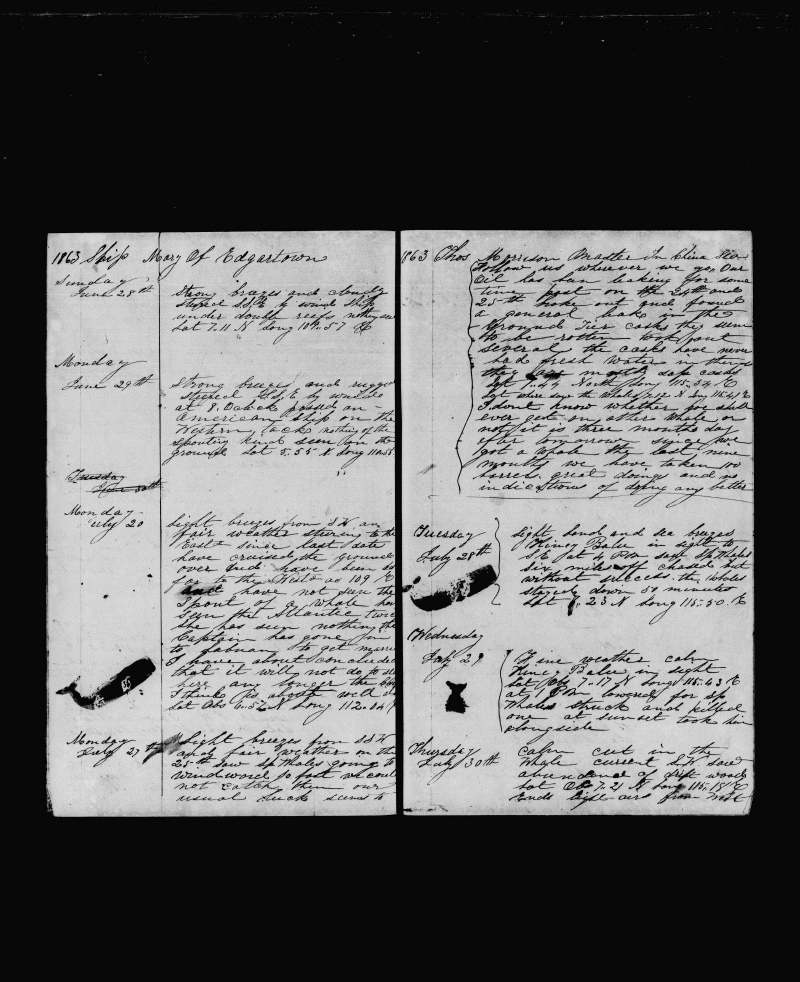 1863 Ship Mary Of Edgartown
Sunday
June 28th
Strong breezes and cloudy
steered SSE by wind Ship
under double reefs nothing seen
Lat 7.11 N Long 109.57 E
Monday
June 29th
Strong breezes and rugged
steered by wind
at 8. Oclock passed an
American Ship on the
Western tack nothing of the
spouting kind seen on the
ground Lat 5.55 N Long 110.55
Tuesday
June 30th
Monday
July 20
Light breezes from SW an
fair weather steering to the
East since last date
have cruised the ground
over and have been as
far to the West as 109 E
and have not seen the
Spout of a Whale have
seen the Atlantic twice
she has seen nothing the
Captain has gone
to to get
I have about concluded
that it will not do to stay
here any longer the
I think is about
Lat Obs 6.52 N Long 112.04
Monday
July 27th
Light breezes from SSW
and fair weather on the
25th saw sp Whales going to
windward so fast we could
not catch them our
usual luck seems to
1863 Thos Morrison Master In China Sea
Follow us wherever we go, Our
Oil has been leaking for some
time past on the 24th and
25th broke out and found
a general leak in the
Ground Tier casks they seem
to be rotten took out
several the casks have never
had fresh water in them
they are mostly sap casks
Lat 7.44 North Long 115.34 E
Lat where saw the Whales N Long 115.41 E
I dont know whether we shall
ever get another Whale or
not it is three months day
after tomorrow since we
got a Whale the last nine
months we have taken 100
barrels great doings and no
indications of doing any better
Tuesday
July 28th
Light land and sea breezes
Balue in sight to
SE at 4 PM saw Sp Whales
six miles off chased but
without success the Whales
staying down 50 minutes
Lat 23 N Long 115.50 E
Wednesday
July 29
Fine weather calm
Balue in sight
Lat Obs 7.17 N Long 115.43 E
at 1 PM lowered for sp
Whales struck and killed
one at sunset took him
alongside
Thursday
July 30th
Calm cut in the
Whale current SW saw
abundance of drift wood
Lat Ob 7.21 N Long 115.15 E
Ends light airs from West